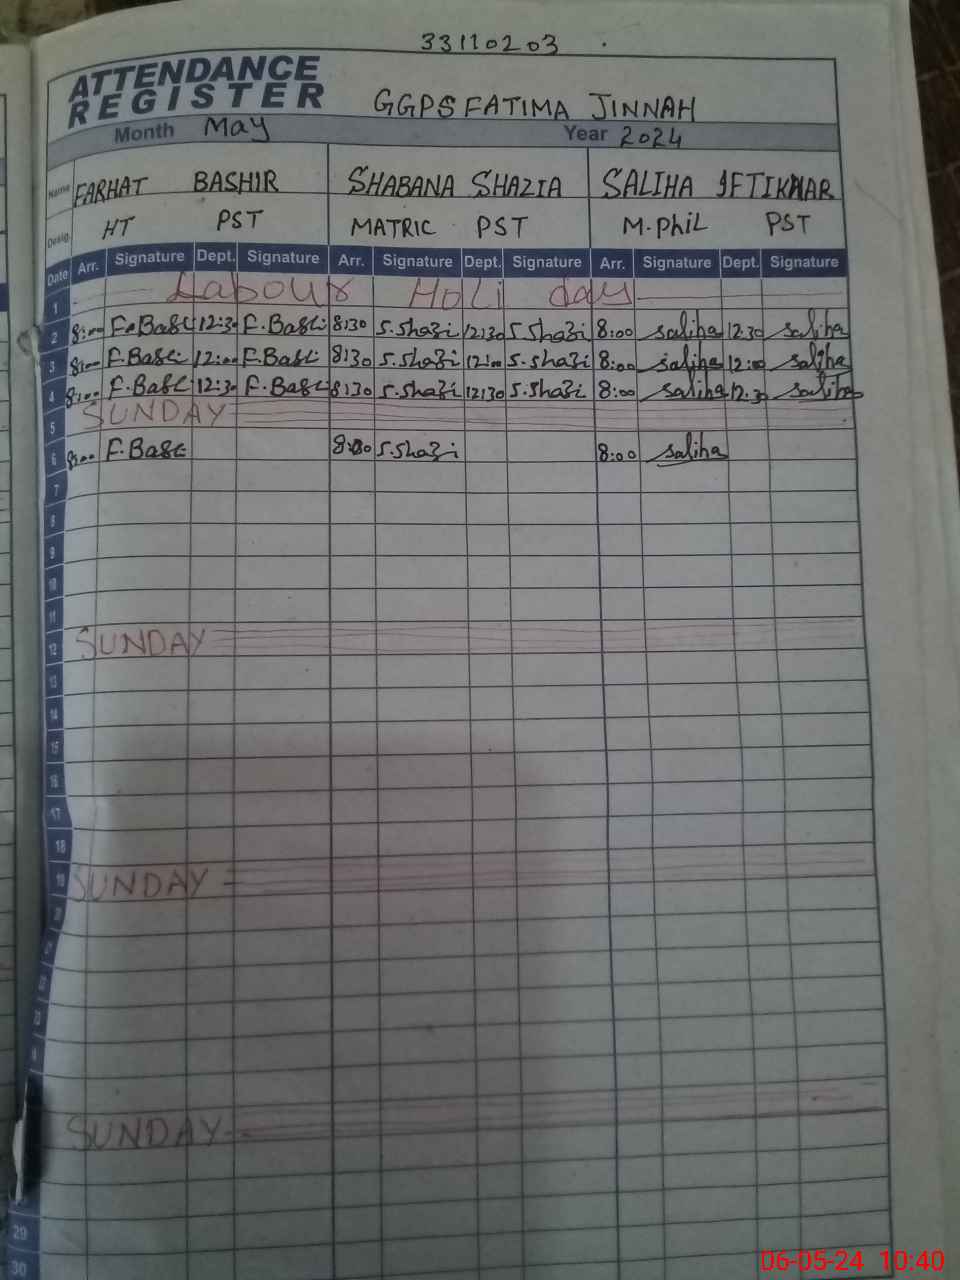 33110203
ATTENDANCE
REGISTER
GGPS FATIMA JINNAH
Month May Year 2024
Name FARHAT BASHIR SHABANA SHAZIA SALIHA IFTIKHAR
Desig. HT PST MATRIC PST M.Phil PST
Date Arr. Signature Dept. Signature Arr. Signature Dept. Signature Arr. Signature Dept. Signature
1 Labour Holi day
2 8:00 F.Bast 12:30 F.Bast 8:30 S.Shazi 12:30 S.Shazi 8:00 saliha 12.30 saliha
3 8:00 F.Bast 12:00 F.Bast 8:30 S.Shazi 12:00 S.Shazi 8:00 saliha 12:00 saliha
4 8:00 F.Bast 12:30 F.Bast 8:30 S.Shazi 12:30 S.Shazi 8:00 saliha 12.30 saliha
5 SUNDAY
6 8:00 F.Bast S.Shazi 8:00 saliha
7
8
9
10
11
12 SUNDAY
13
14
15
16
17
18
19 SUNDAY
SUNDAY
29
30
06-05-24 10:40